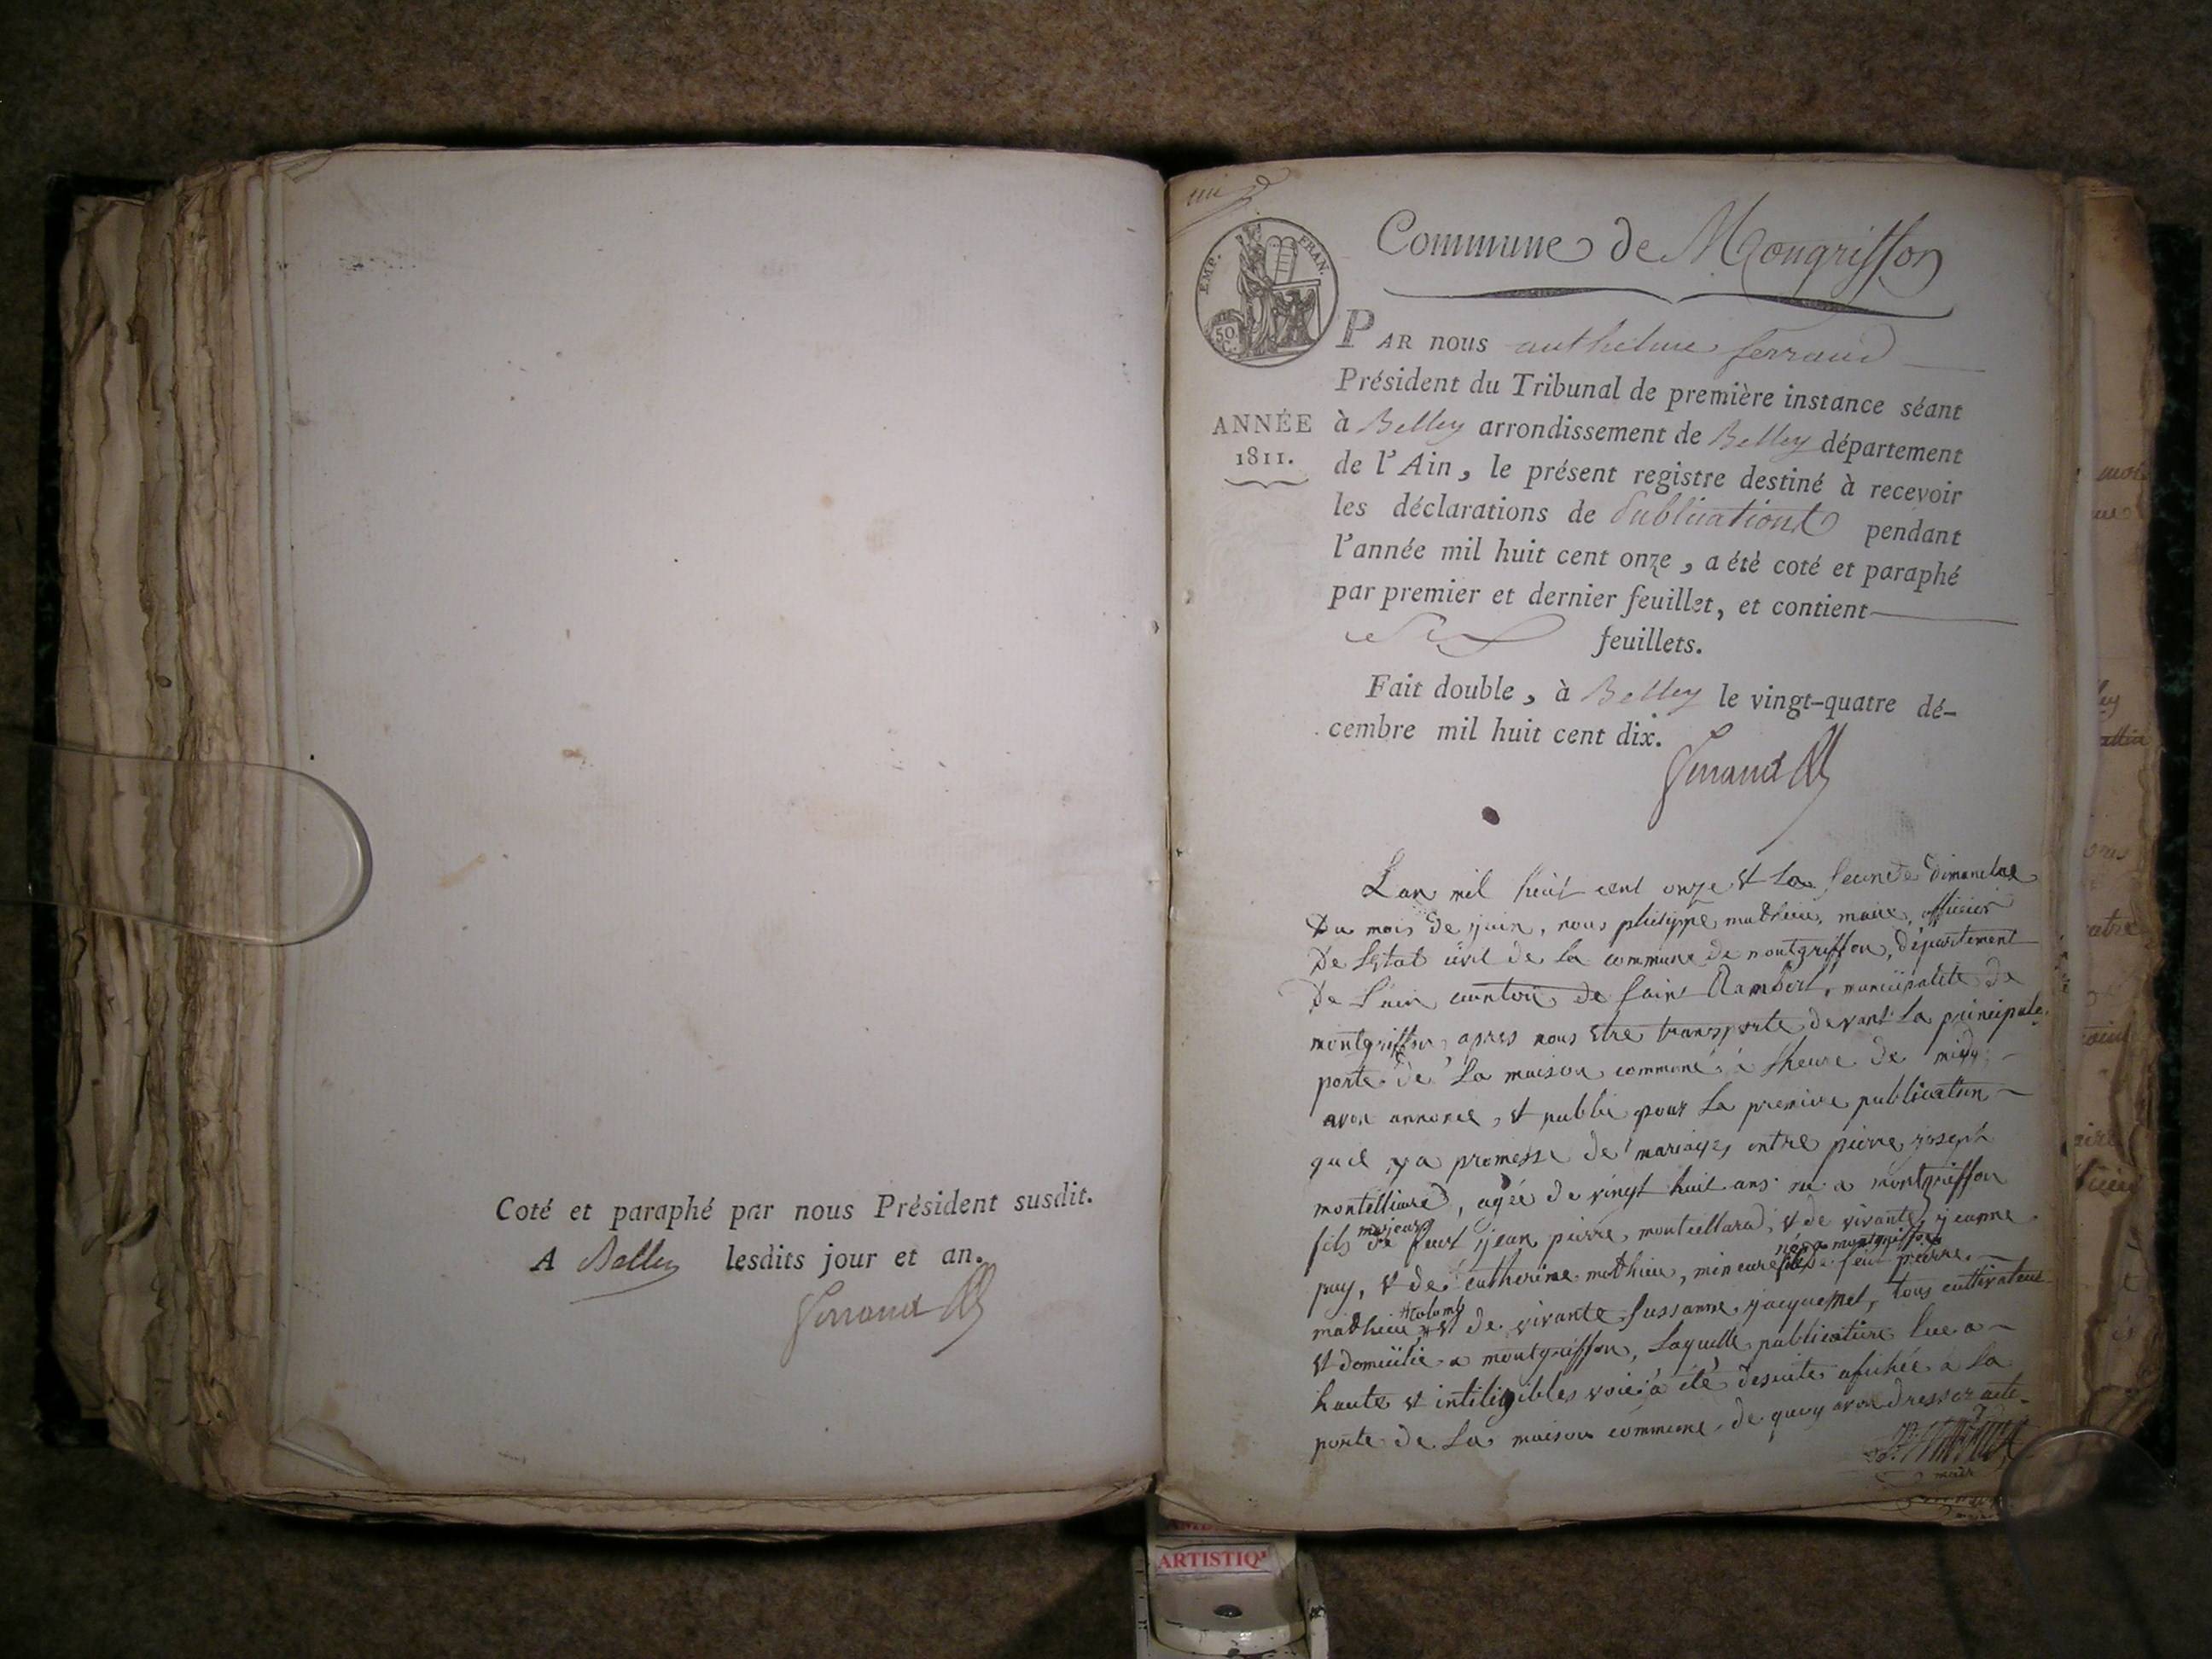 Coté et paraphé par nous Président susdit.
A Belley lesdits jour et an.
Ferrand
Commune de Mongriffon
EMP. FRAN.
50 C.
PAR nous anthelme ferrand
Président du Tribunal de première instance séant
ANNÉE
1811.
à Belley arrondissement de Belley département
de l'Ain, le présent registre destiné à recevoir
les déclarations de Publications pendant
l'année mil huit cent onze, a été coté et paraphé
par premier et dernier feuillet, et contient
six feuillets.
Fait double, à Belley le vingt-quatre dé-
cembre mil huit cent dix.
Ferrand
Lan mil huit cent onze et la seconde dimanche
Du mois de juin, nous philippe mathieu, maire, officier
De letat civil de la commune de montgriffon, département
De lain canton de saint Rambert, municipalité de
montgriffon, apres nous etre transporte devant la principale
porte de la maison commune à lheure de midy
avon annoncé, et publié pour la premiere publication
quil ya promesse de mariage, entre pierre joseph
montelliard, agée de vingt huit ans né a montgriffon
fils majeur de feut jean pierre montelliard, et de vivante jeanne
puy, et de catherine mathieu, mineure née a montgriffon fille de feut pierre
mathieu colomb et de vivante sussanne jacquemet, tous cultivateur
et domicilié a montgriffon, laquelle publication lue a
haute et intiligibles voie, a été desuite afichée a la
porte de la maison commune, de quoy avon dresser acte
ARTISTIQ